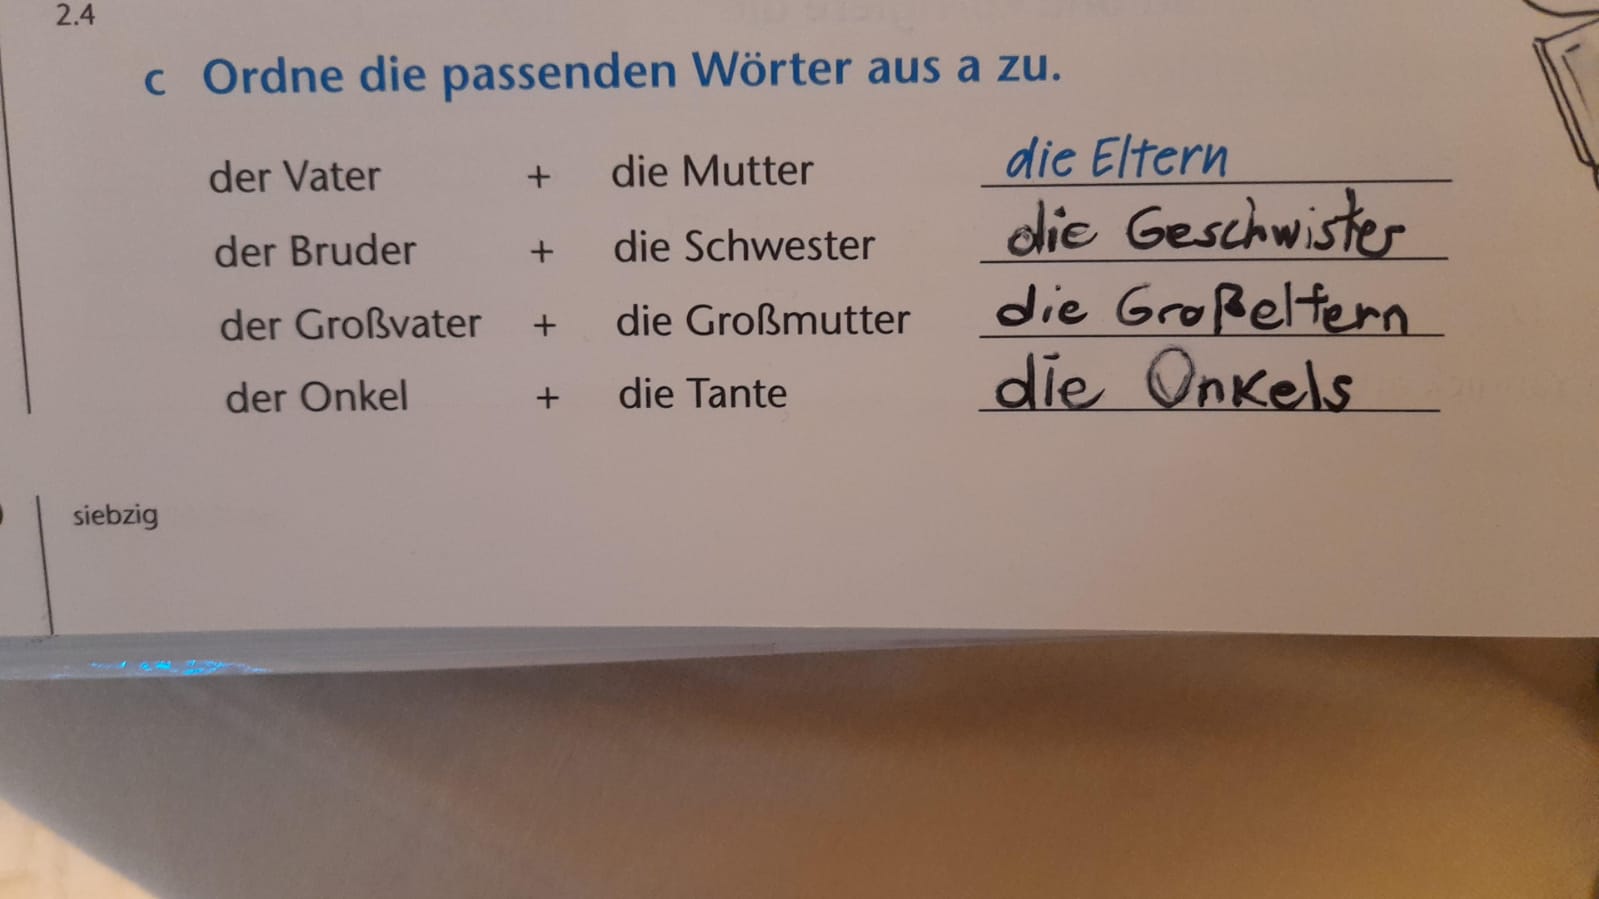 2.4
c Ordne die passenden Wörter aus a zu.
der Vater + die Mutter die Eltern
der Bruder + die Schwester die Geschwister
der Großvater + die Großmutter die Großeltern
der Onkel + die Tante die Onkels
siebzig